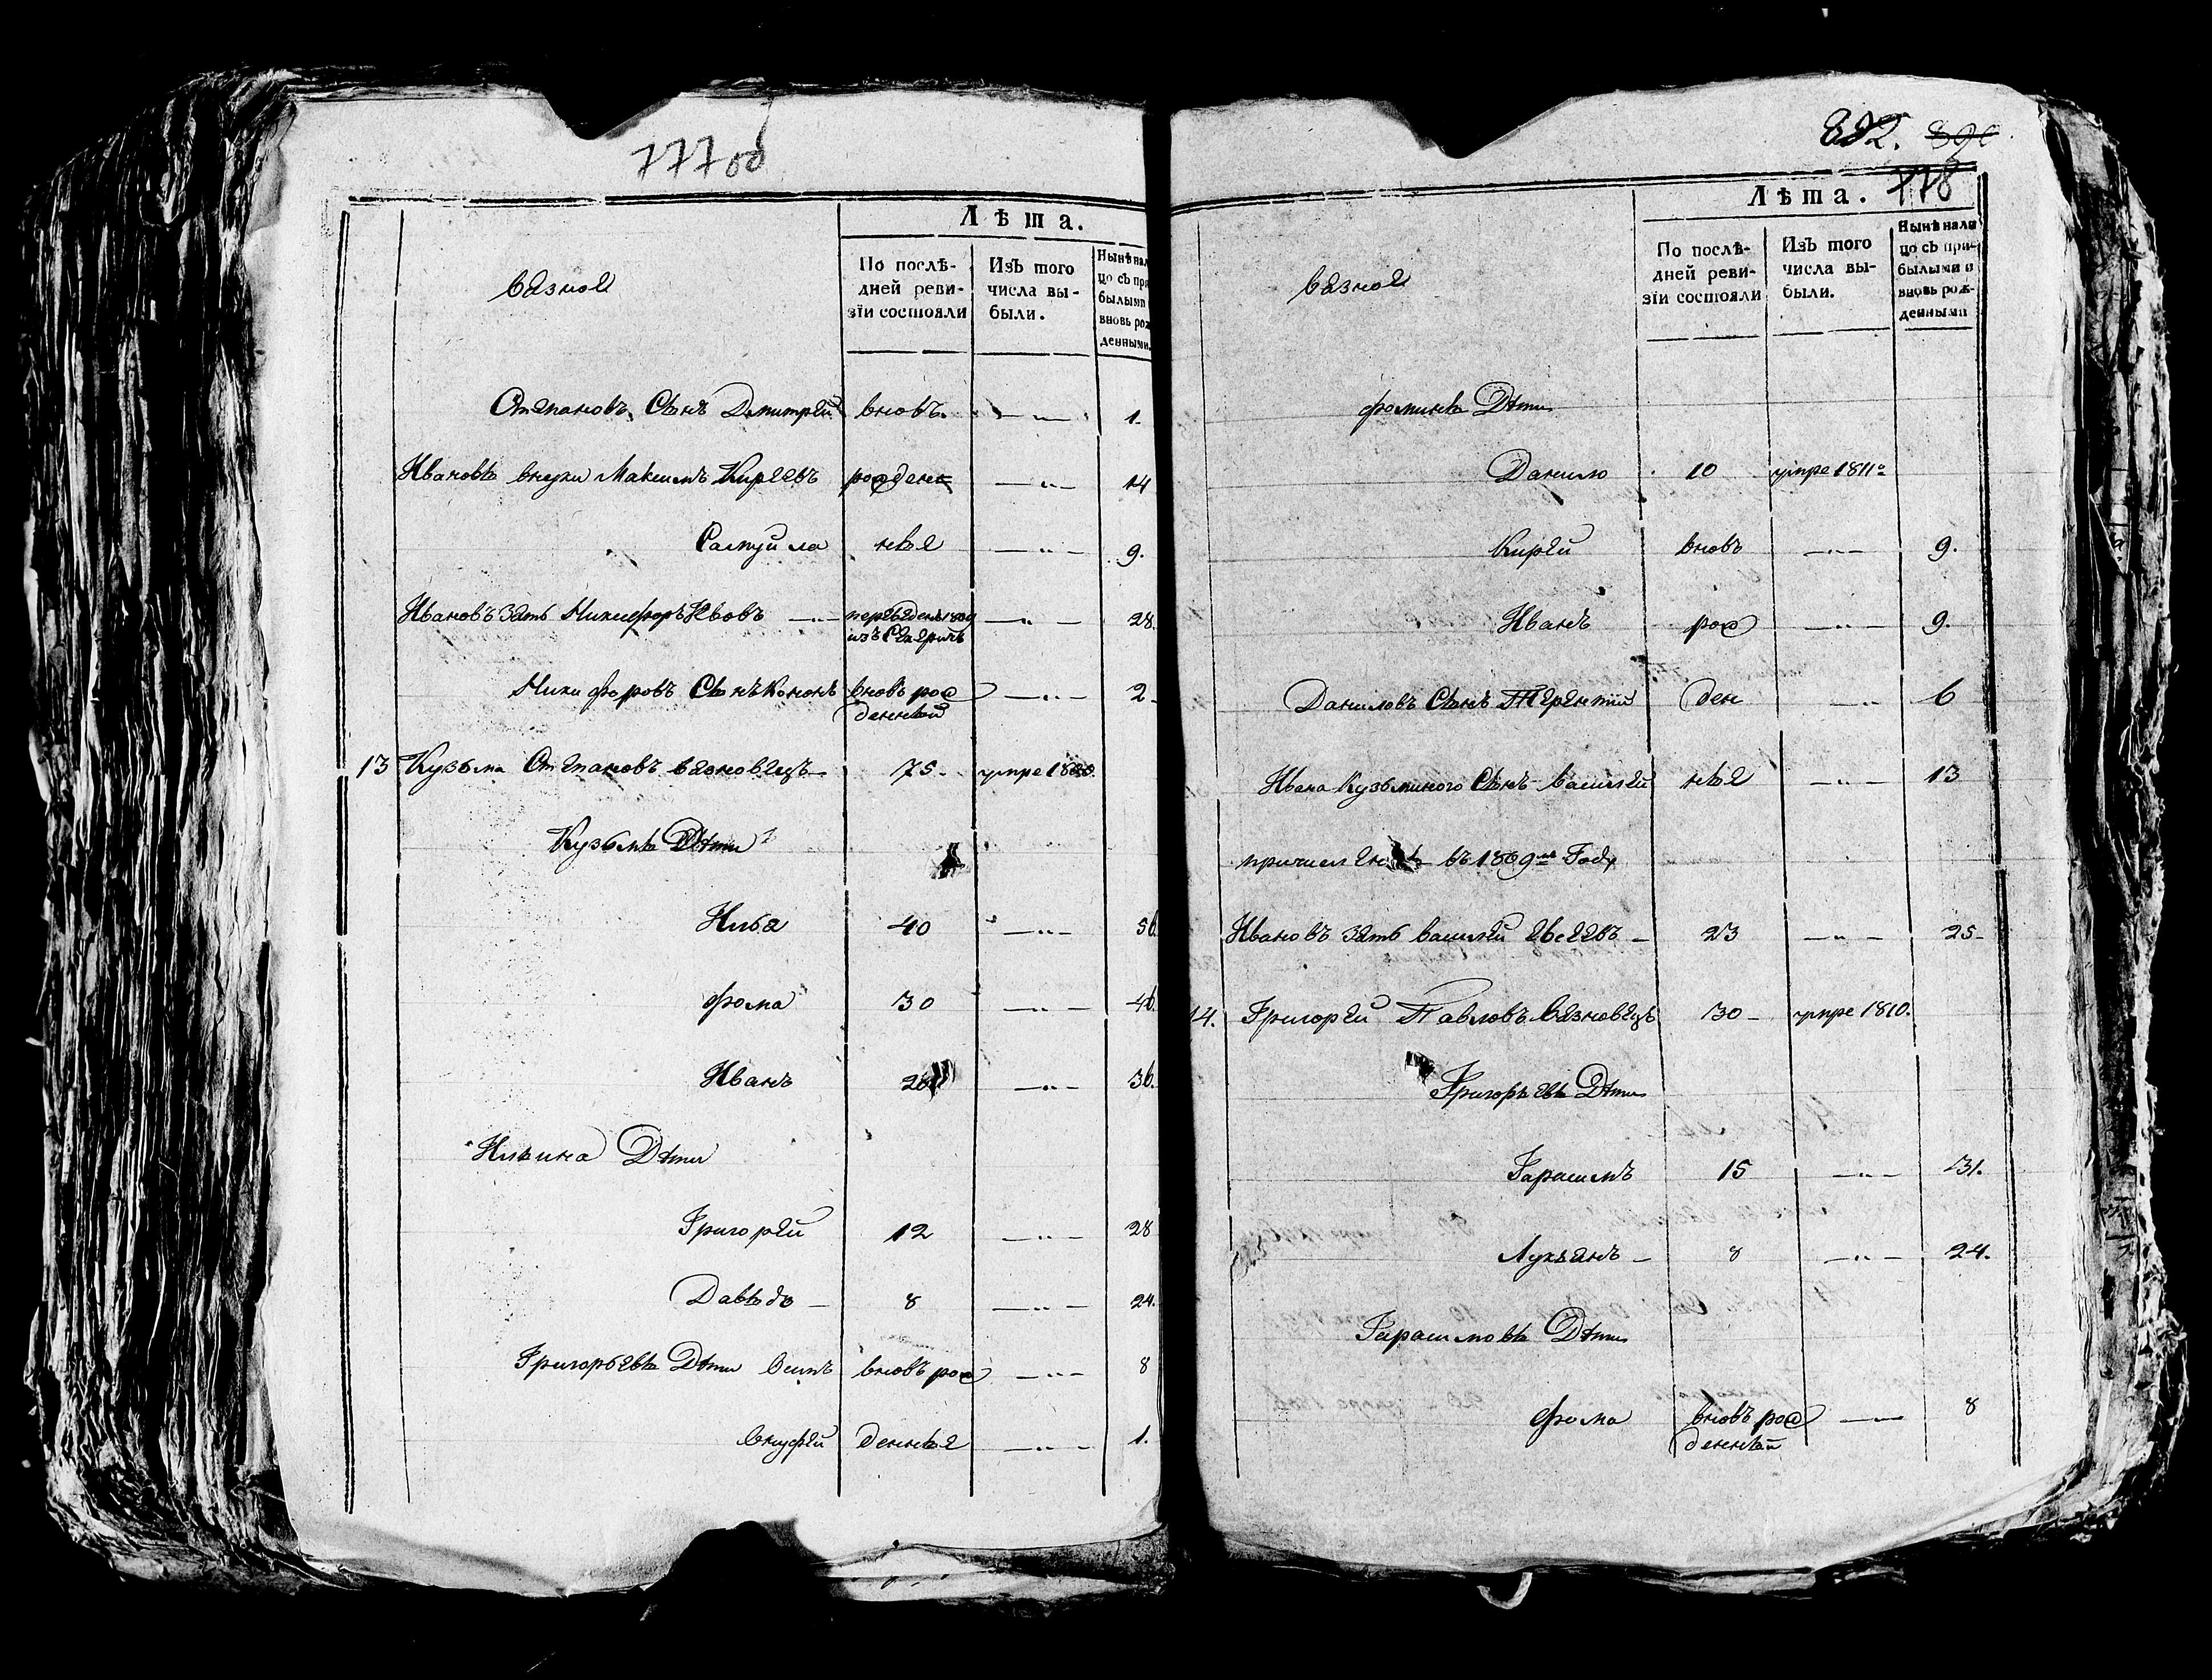 777об
Лѣта.
Вязное
По послѣ-
дней реви-
зіи состояли
Изъ того
числа вы-
были.
Нынѣ нал
цо съ при
былыми
вновь рож
денными.
Степановъ Сынъ Дмитрей вновь 1.
Ивановы внуки Максимъ Кирѣевъ рожден 14
Самуйла ные 9.
Ивановъ Зять Никифоръ Ивовъ переведенъ 1809 28.
Никифоровъ Сынъ Кононъ вновь рож 2
денный
13 Кузьма Степановъ Вязновецъ 75 умре
Кузьмы Дѣти
Илья 40 56.
Фома 30 46.
Иванъ 20 36.
Ильина Дѣти
Григорей 12 28
Давыдъ 8 24.
Григорьевы Дѣти Осипъ вновь рож 8
Ануфрей денные 1.
892.
778
Лѣта.
Вязное
По послѣ-
дней реви-
зіи состояли
Изъ того
числа вы-
были.
Нынѣ нали
цо съ при-
былыми и
вновь рож-
денными
Фомины Дѣти
Данило 10 умре 1811º
Кирѣй вновь 9.
Иванъ рож 9.
Даниловъ Сынъ Терентій ден 6
Ивана Кузьминого Сынъ Василей ные 13
въ 1809мъ Году
Ивановъ Зять Василей Евсеевъ 23 25
14. Григорей Павловъ Вязновецъ 30 умре 1810.
Григорьевы Дѣти
Гарасимъ 15 31.
Лукьянъ 8 24.
Гарасимовы Дѣти
Фома вновь рож 8
денный